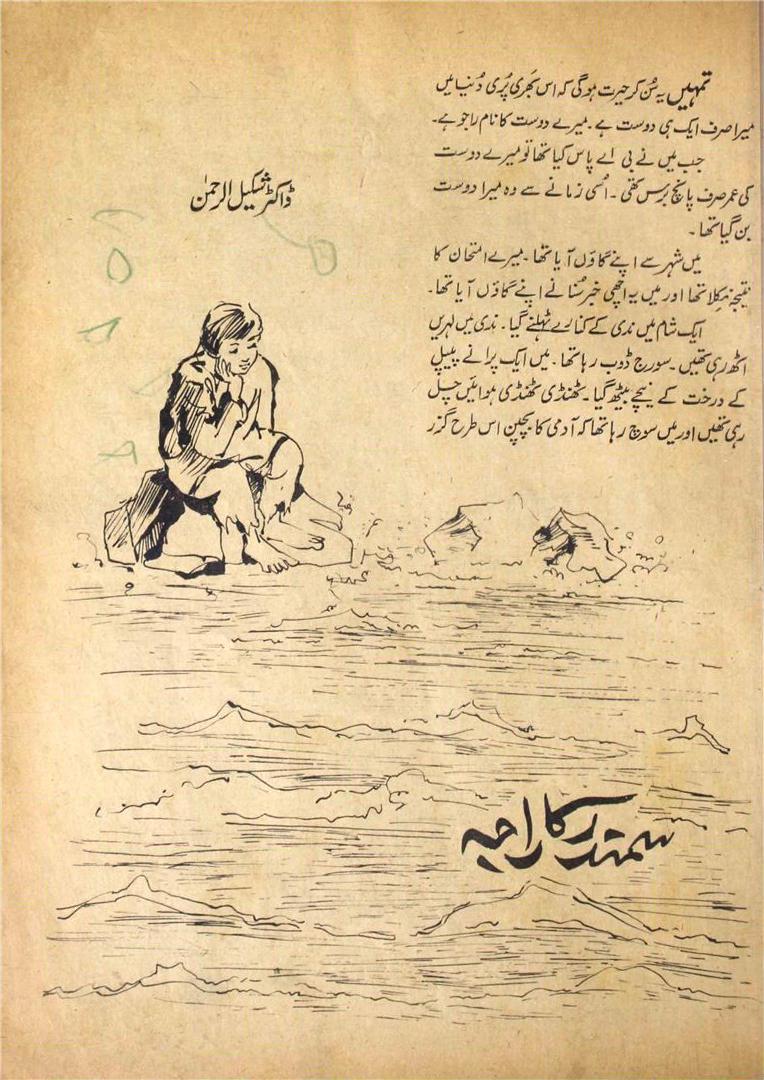 تمہیں یہ سُن کر حیرت ہوگی کہ اس بَھری پُری دُنیا میں
میرا صرف ایک ہی دوست ہے ۔ میرے دوست کا نام راجو ہے ۔
جب میں نے بی اے پاس کیا تھا تو میرے دوست
کی عمر صرف پانچ برس تھی ۔ اُسی زمانے سے وہ میرا دوست
بن گیا تھا ۔
میں شہر سے اپنے گاؤں آیا تھا ۔ میرے امتحان کا
نتیجہ نکلا تھا اور میں یہ اچھی خبر سُنانے اپنے گاؤں آیا تھا ۔
ایک شام میں ندی کے کنارے ٹہلنے گیا ۔ ندی میں لہریں
اٹھ رہی تھیں ۔ سورج ڈوب رہا تھا ۔ میں ایک پرانے پیپل
کے درخت کے نیچے بیٹھ گیا ۔ ٹھنڈی ٹھنڈی ہوائیں چل
رہی تھیں اور میں سوچ رہا تھا کہ آدمی کا بچپن اس طرح گزر
ڈاکٹر شکیل الرحمٰن
سمندر کا راجہ